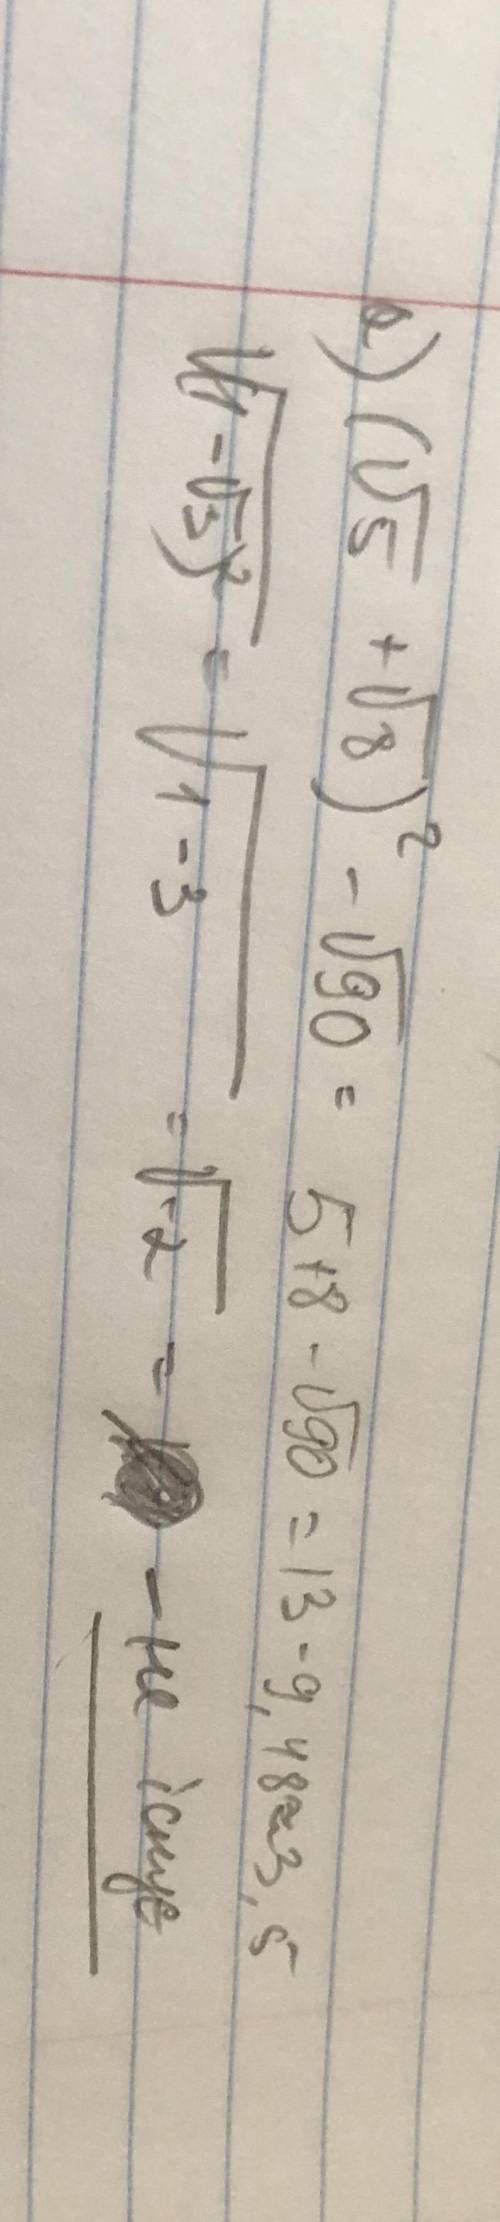 а) (√5 + √8)² - √90 = 5 + 8 - √90 = 13 - 9,48 ≈ 3,5
√(1 - √3)² = √1 - 3 = √-2 = - не існує